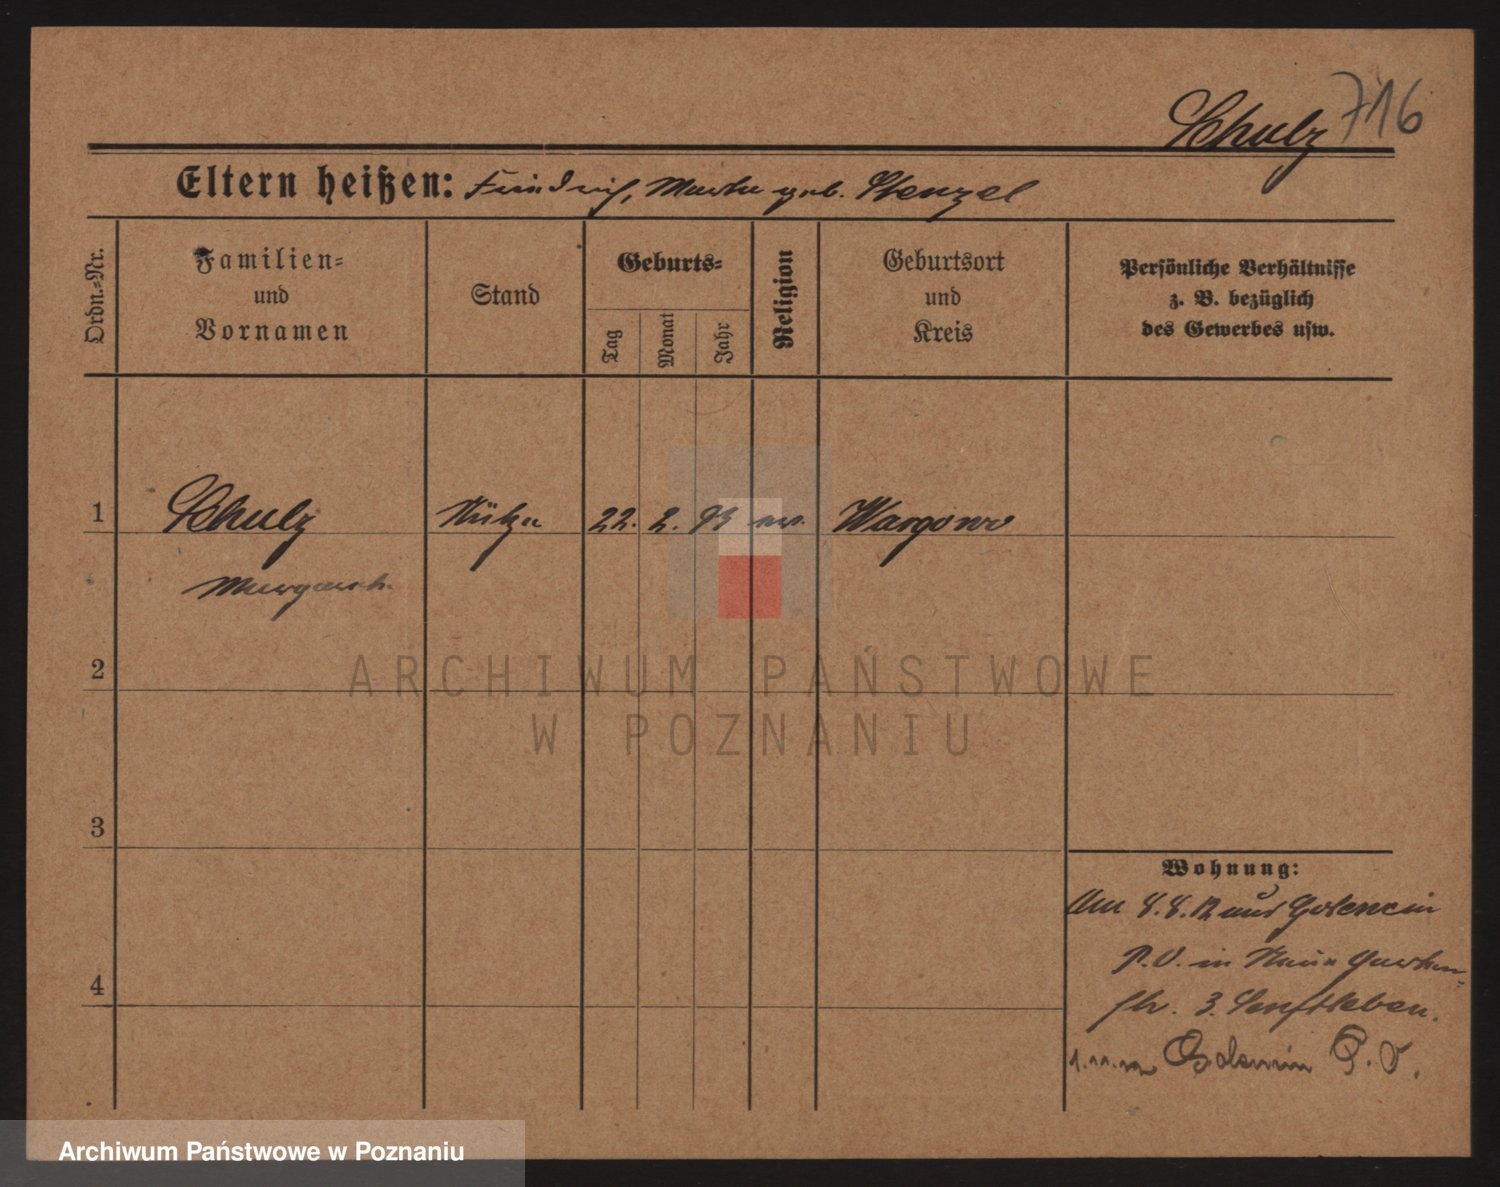 Schulz 716
Eltern heißen: Friedrich, Martha geb. Stenzel
Ordn.-Nr.
Familien-
und
Vornamen
Stand
Geburts-
Tag
Monat
Jahr
Religion
Geburtsort
und
Kreis
Persönliche Verhältnisse
z. B. bezüglich
des Gewerbes usw.
1 Schulz 22. 2. 93 ev. Wargowo
Margareth.
2
3
4
Wohnung:
Am 8.8.12 aus Golencin
P.O. in
str. 3. Senftleben.
Golencin P.O.
ARCHIWUM PAŃSTWOWE
W POZNANIU
Archiwum Państwowe w Poznaniu